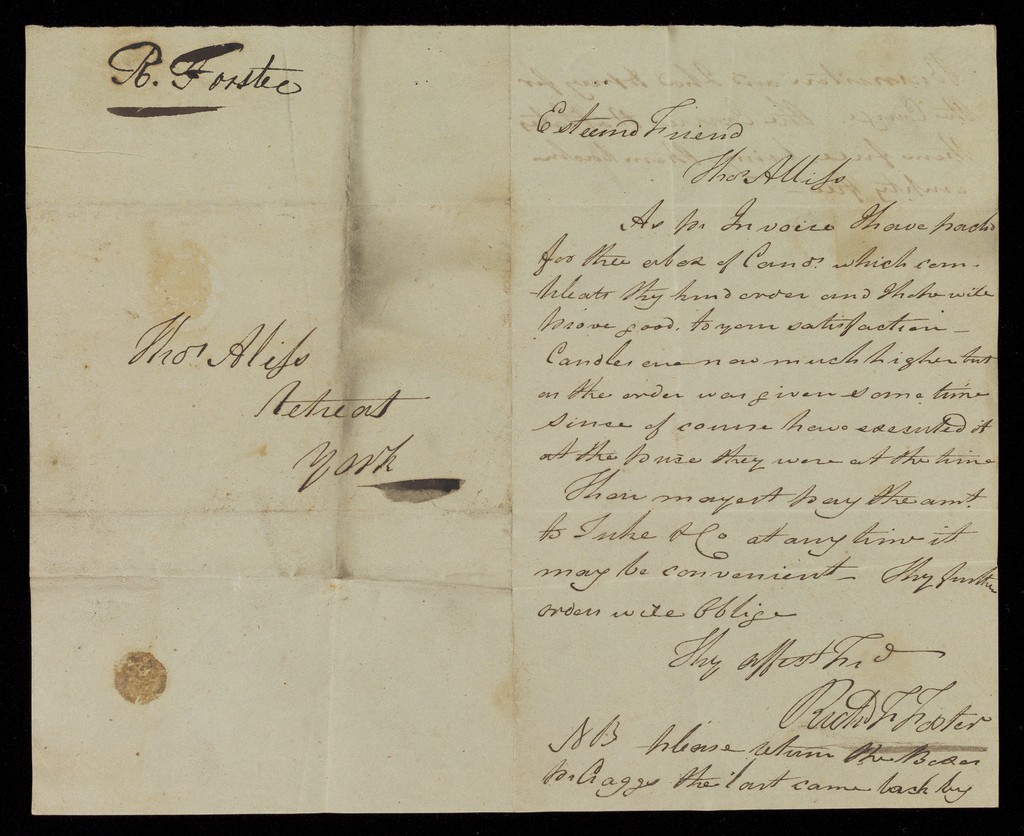 R. Forster
Thos Aliss
Retreat
York
Esteemd Friend
Thos Alliss
As pr Invoice I have packd
for thee a box of Cands. which com-
pleats thy kind order and I hope will
prove good, to your satisfaction -
Candles are now much higher but
as the order was given some time
since of course have executed it
at the price they were at the time
Thou mayest pay the amt.
to Tuke & Co at any time it
may be convenient - Thy further
orders will oblige
Thy affect Frd
Richd F Foster
NB please return the Boxes
pr Craggs the last came back by